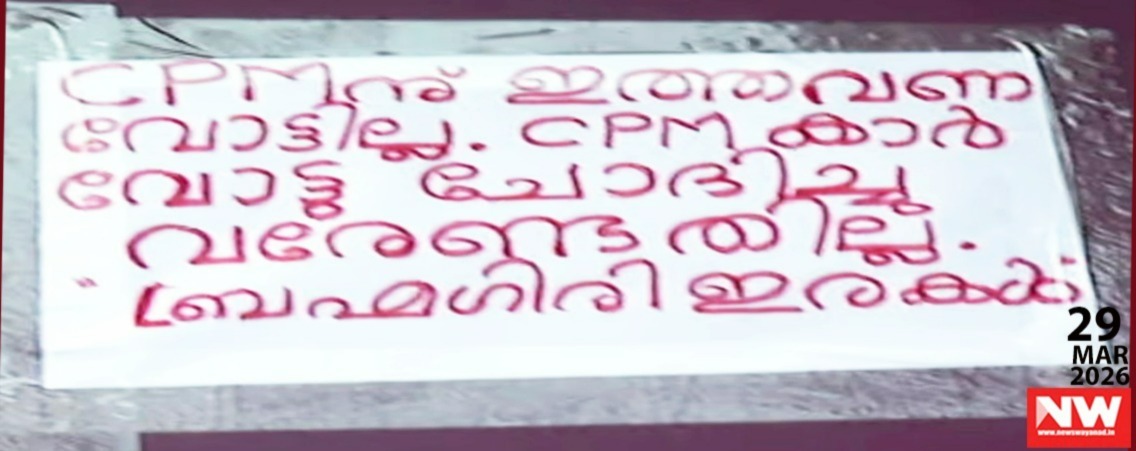 CPMന് ഇത്തവണ
വോട്ടില്ല. CPM കാർ
വോട്ടു ചോദിച്ചു
വരേണ്ടതില്ല.
" ബ്രഹ്മഗിരി ഇരകൾ
29
MAR
2026
NW
www.newswayanad.in